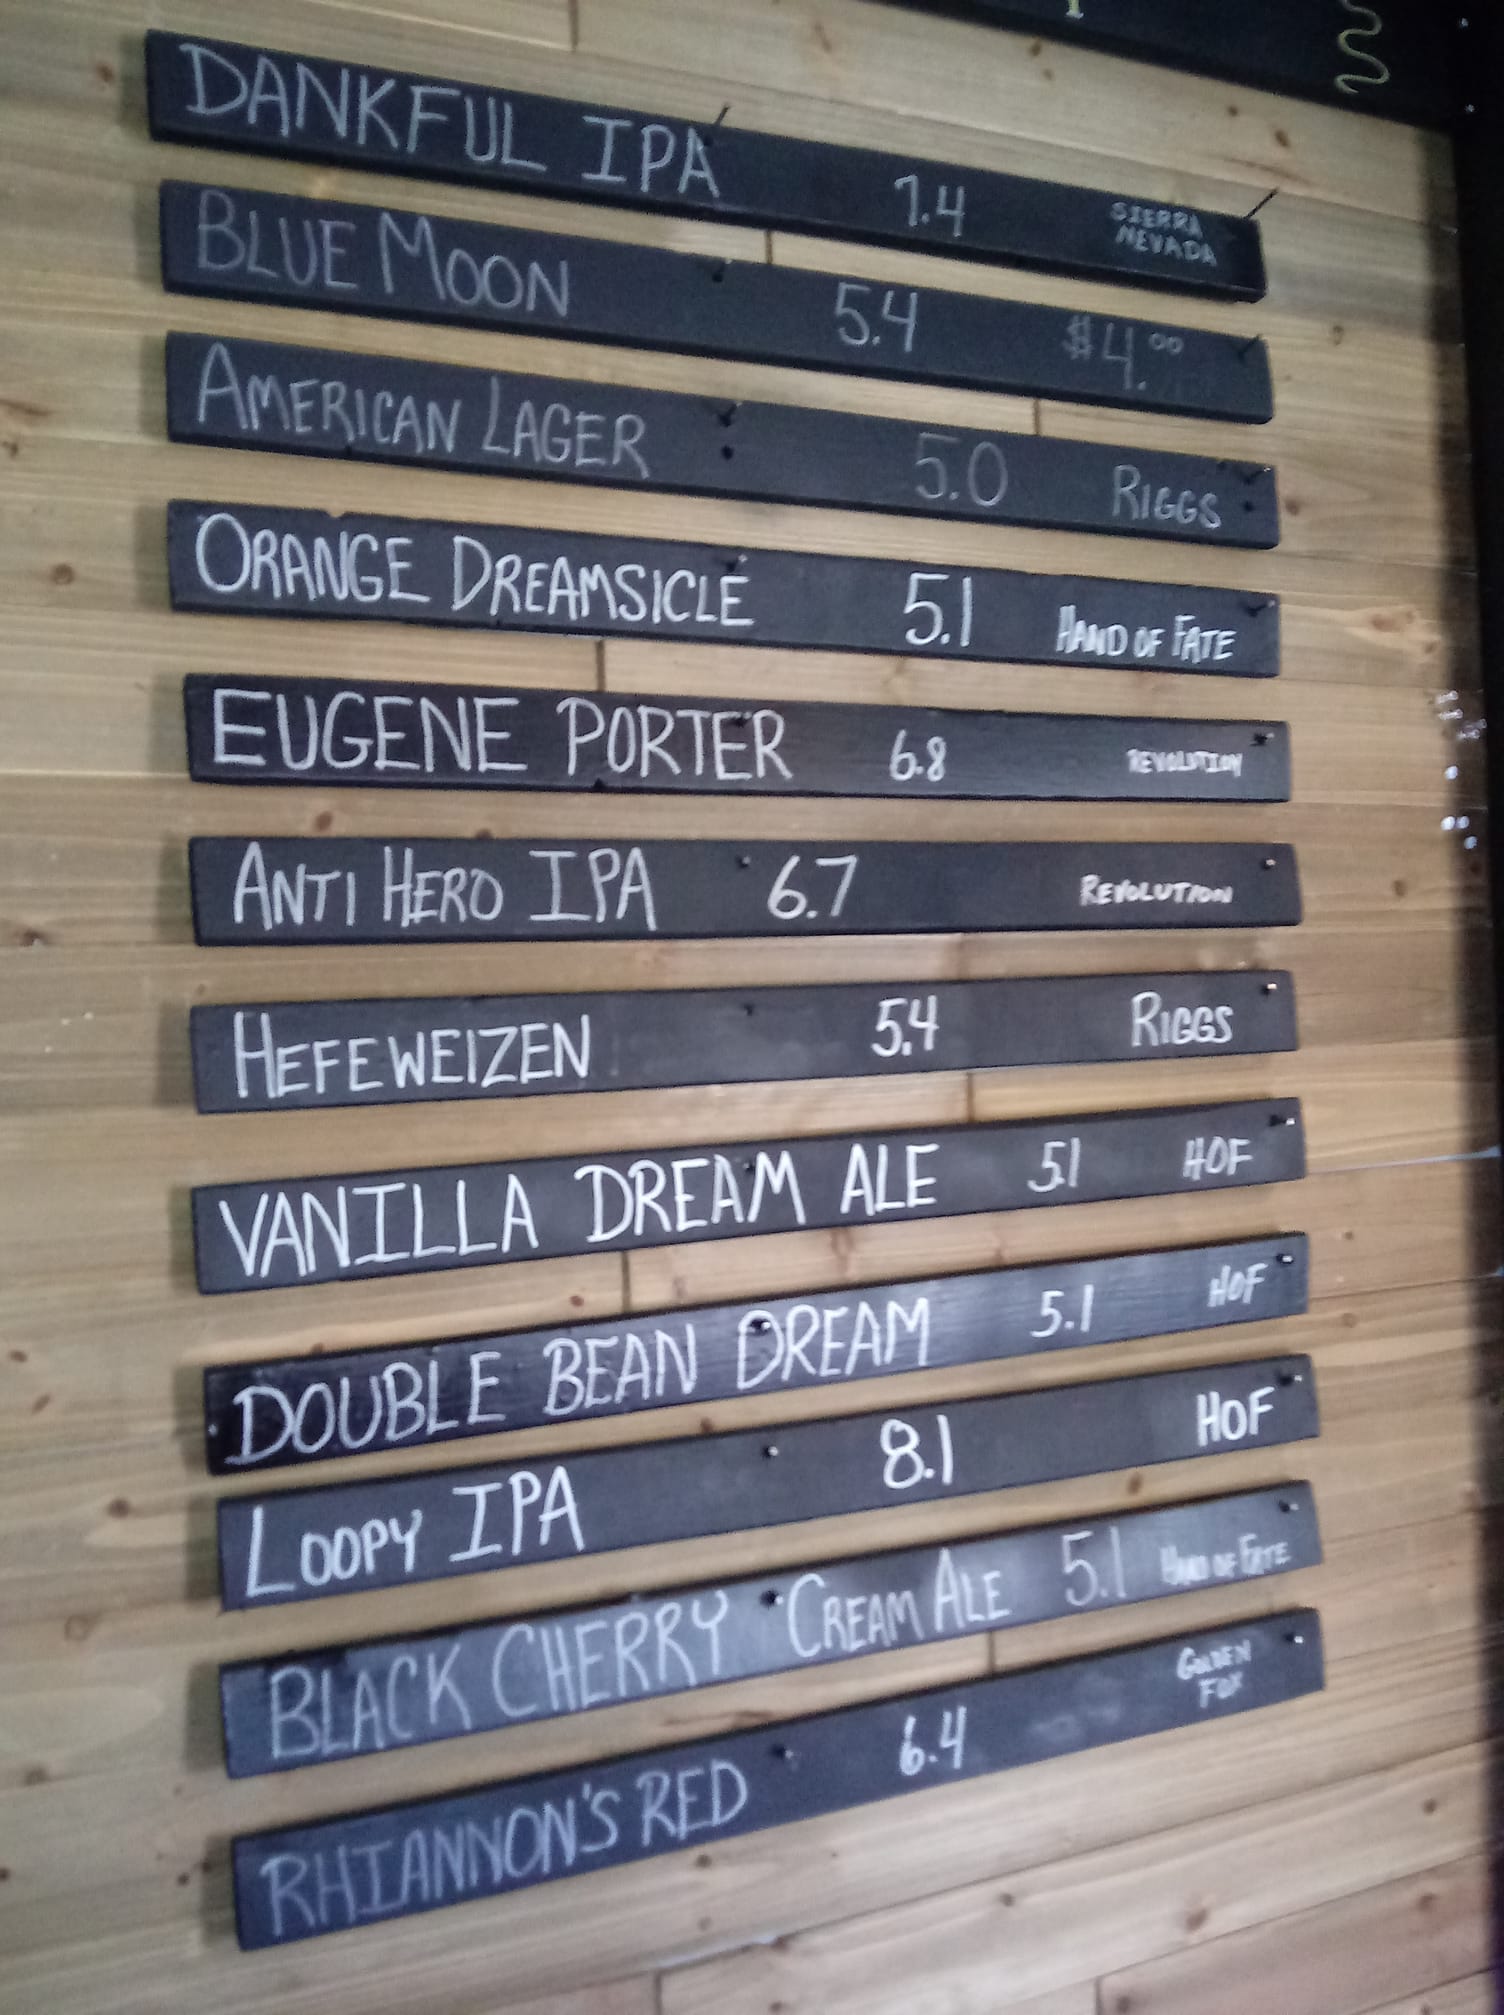 DANKFUL IPA 7.4 SIERRA NEVADA
BLUE MOON 5.4 $4.00
AMERICAN LAGER 5.0 RIGGS
ORANGE DREAMSICLE 5.1 HAND OF FATE
EUGENE PORTER 6.8 REVOLUTION
ANTI HERO IPA 6.7 REVOLUTION
HEFEWEIZEN 5.4 RIGGS
VANILLA DREAM ALE 5.1 HOF
DOUBLE BEAN DREAM 5.1 HOF
LOOPY IPA 8.1 HOF
BLACK CHERRY CREAM ALE 5.1 HAND OF FATE
RHIANNON'S RED 6.4 GOLDEN FOX